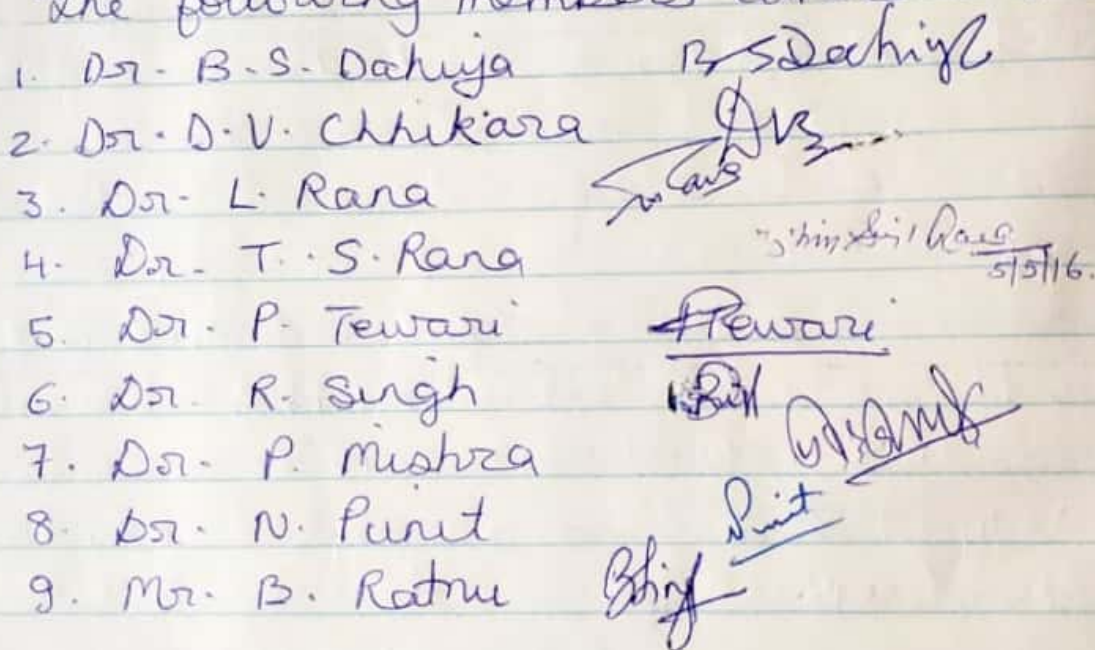 The following members
1. Dr. B.S. Dahiya BSDahiya
2. Dr. D.V. Chhikara
3. Dr. L. Rana
4. Dr. T.S. Rana Rana
5/5/16.
5. Dr. P. Tewari PTewari
6. Dr. R. Singh
7. Dr. P. Mishra
8. Dr. N. Punit Punit
9. Mr. B. Ratnu